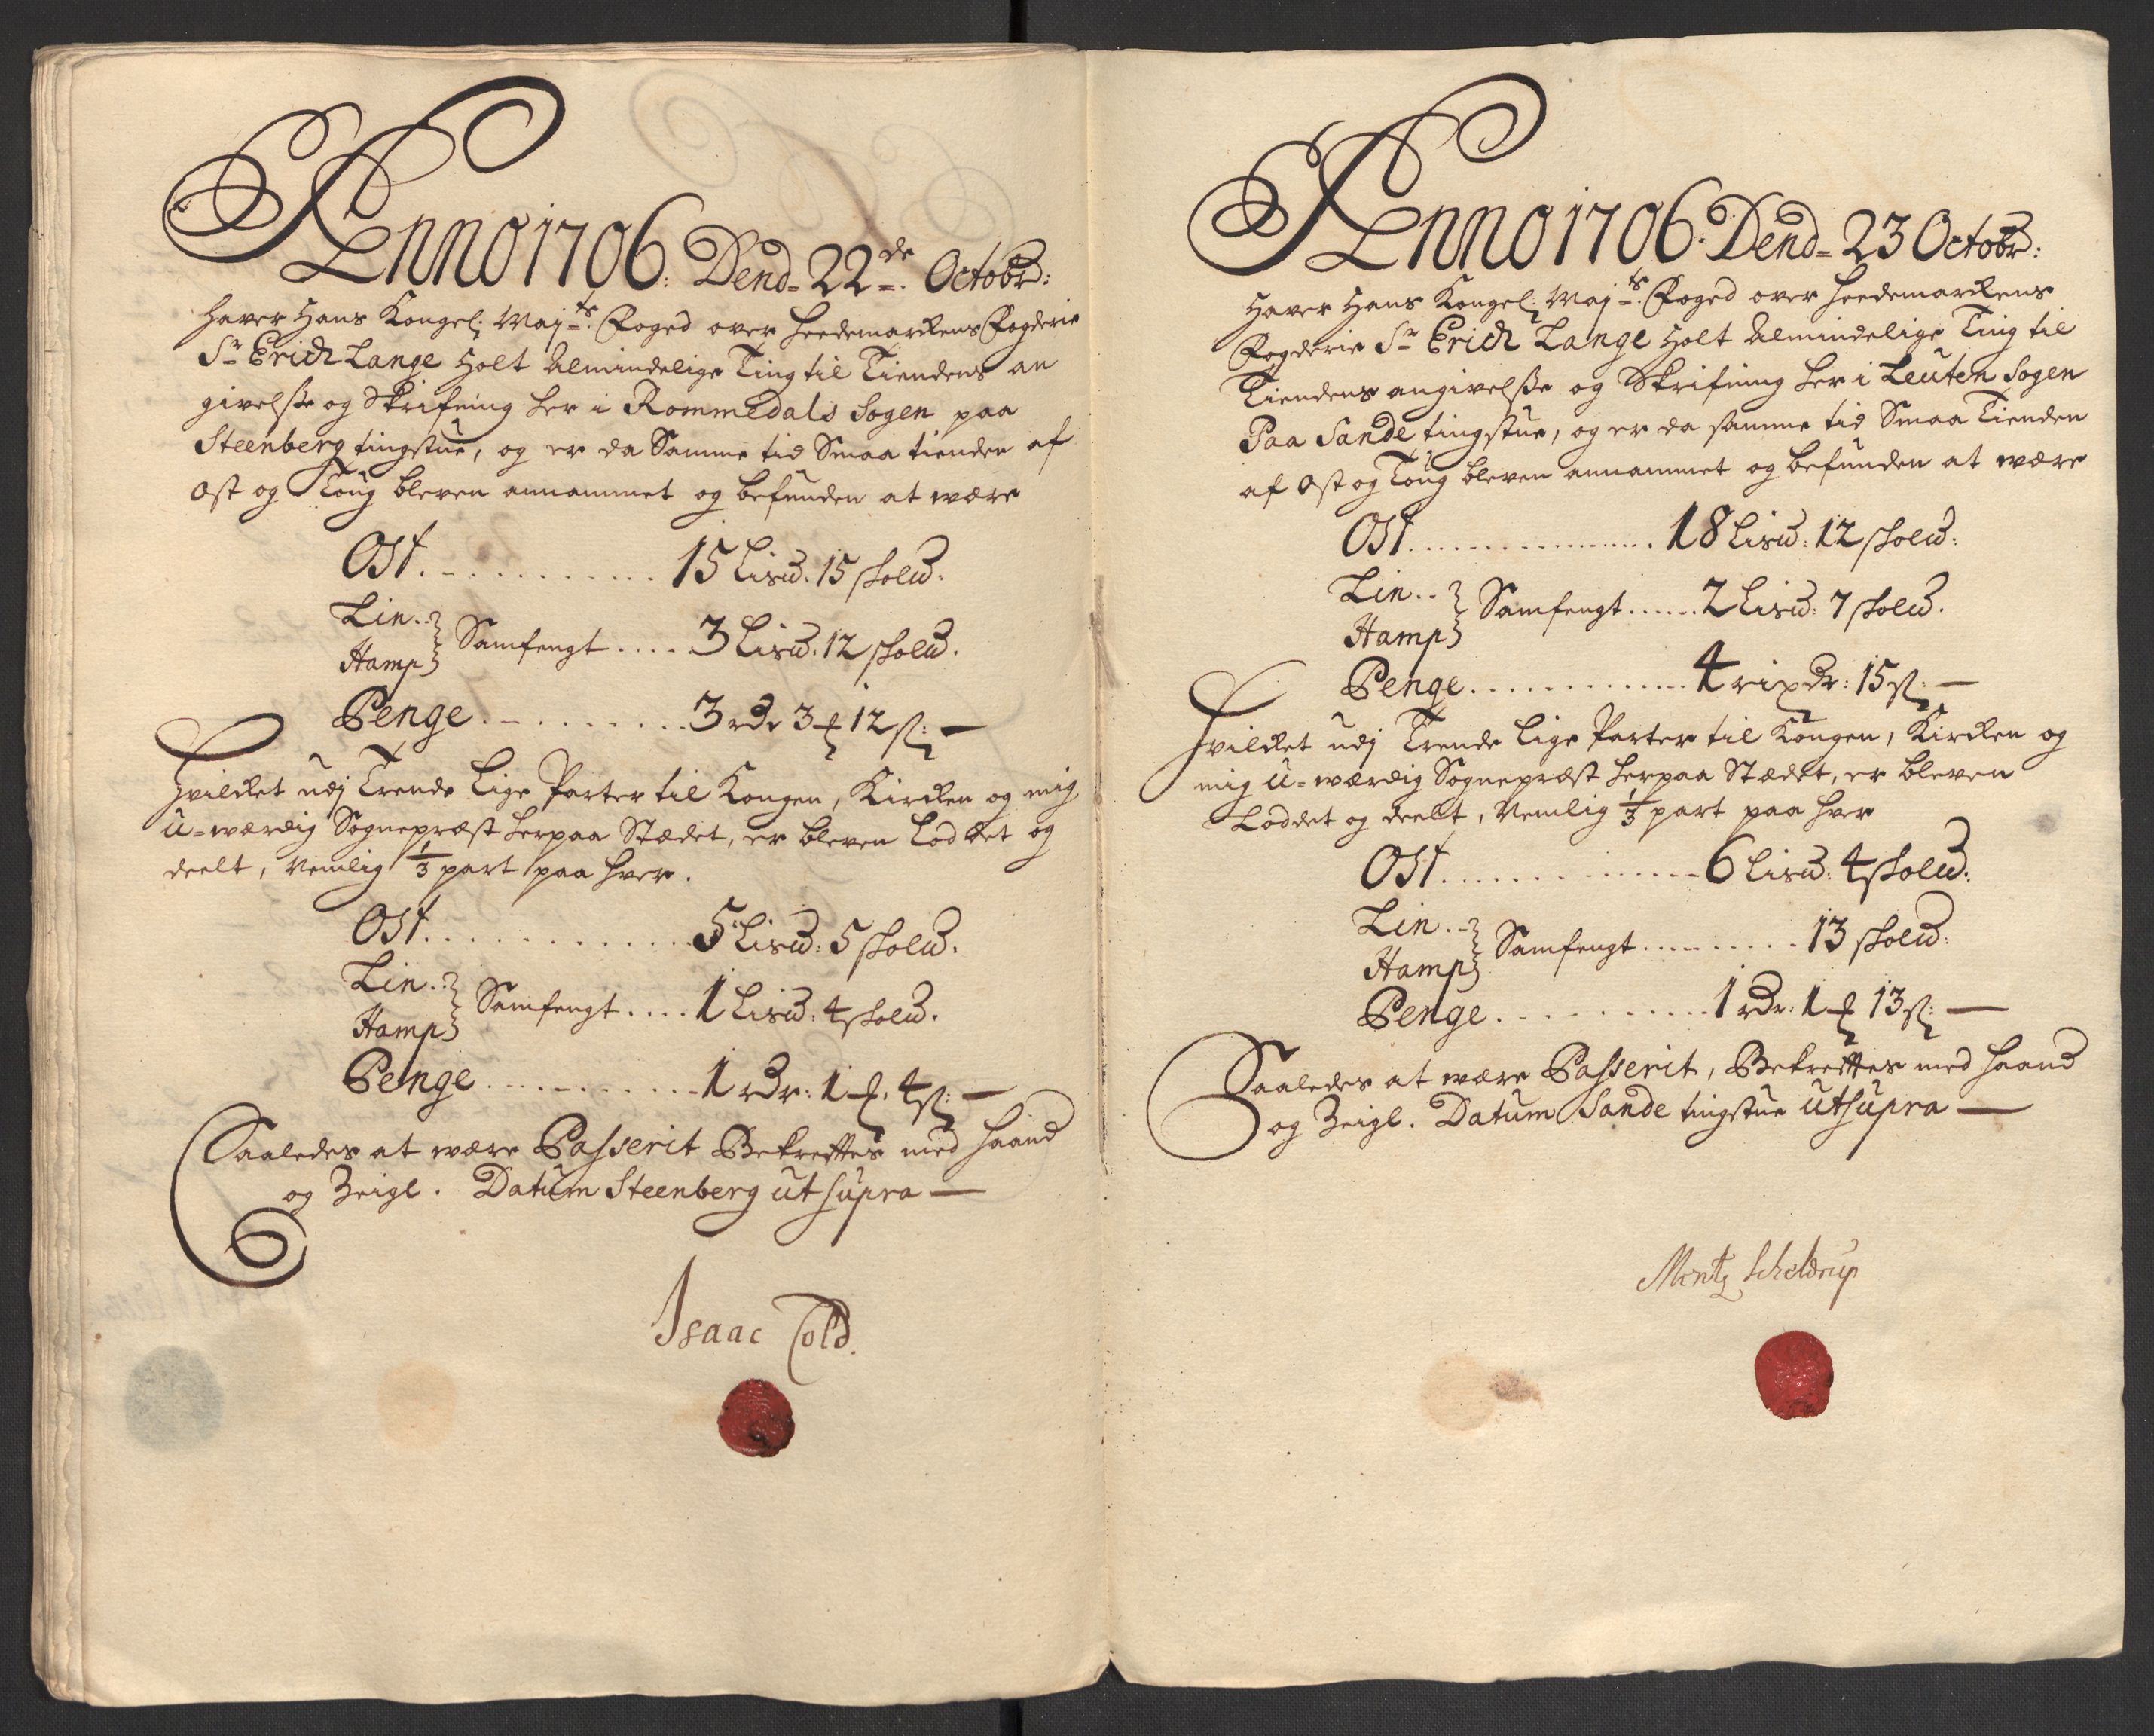 Anno 1706: Dend= 22de. Octobr:
Haver Hans Kongel: Maj:ts. Foged over Heedemarkens Fogderie
Sr Erich Lange Holt Almindelige Ting til Tiendens an
givelsse og Skrifning her i Rommedals Sogen paa
Steenberg tingstue, og er da Samme tid Smaa tienden af
Ost og Toug bleven annammet og befunden at være
Ost. . . . . . . . . . . . 15 Lisđ. 15 skolđ.
Lin..
Hamp } Samfengt . . . . 3 Lisđ. 12 skolđ.
Penge . . . . . . . . . 3 rdr 3 ƒ 12 sl: —
Hvilket udj Trende Lige Parter til Kongen, Kirken og mig
U=værdig Sognepræst herpaa Stædet, er bleven Loddet og
deelt, Nemlig 1/3 part paa hver.
Ost. . . . . . . . . . . . 5 Lisđ: 5 skolđ.
Lin..
Hamp } Samfengt . . . . 1 Lisđ: 4 skolđ.
Penge . . . . . . . . . . 1 rdr: 1 ƒ. 4 sl: —
Saaledes at være Passerit Bekreftes med Haand
og Zeigl. Datum Steenberg ut supra —
Isaac Cold.
Anno 1706: Dend= 23 Octobr:
Haver Hans Kongel: Maj:ts. Foged over Heedemarkens
Fogderie Sr Erich Lange Holt Almindelige Ting til
Tiendens angivelsse og Skrifning her i Leuten Sogen
Paa Sande tingstue, og er da samme tid Smaa Tienden
af Ost og Toug bleven annammet og befunden at være
Ost. . . . . . . . . . . . 18 Lisđ: 12 skolđ:
Lin..
Hamp } Samfengt . . . . . . 2 Lisđ: 7 skolđ.
Penge . . . . . . . . . . . 4 rixdr: 15 sl: —
Hvilket udj Trende Lige Parter til Kongen, Kirken og
mig U=værdig Sognepræst herpaa Stædet, er bleven
Loddet og deelt, Nemlig 1/3 part paa hver
Ost. . . . . . . . . . . . 6 Lisđ: 4 skolđ.
Lin..
Hamp } Samfengt . . . . . . . . 13 skolđ:
Penge . . . . . . . . . . 1 rdr: 1 ƒ 13 sl: —
Saaledes at være Passerit, Bekreftes med Haand
og Zeigl. Datum Sande tingstue ut supra —
Mentz Scheldrup